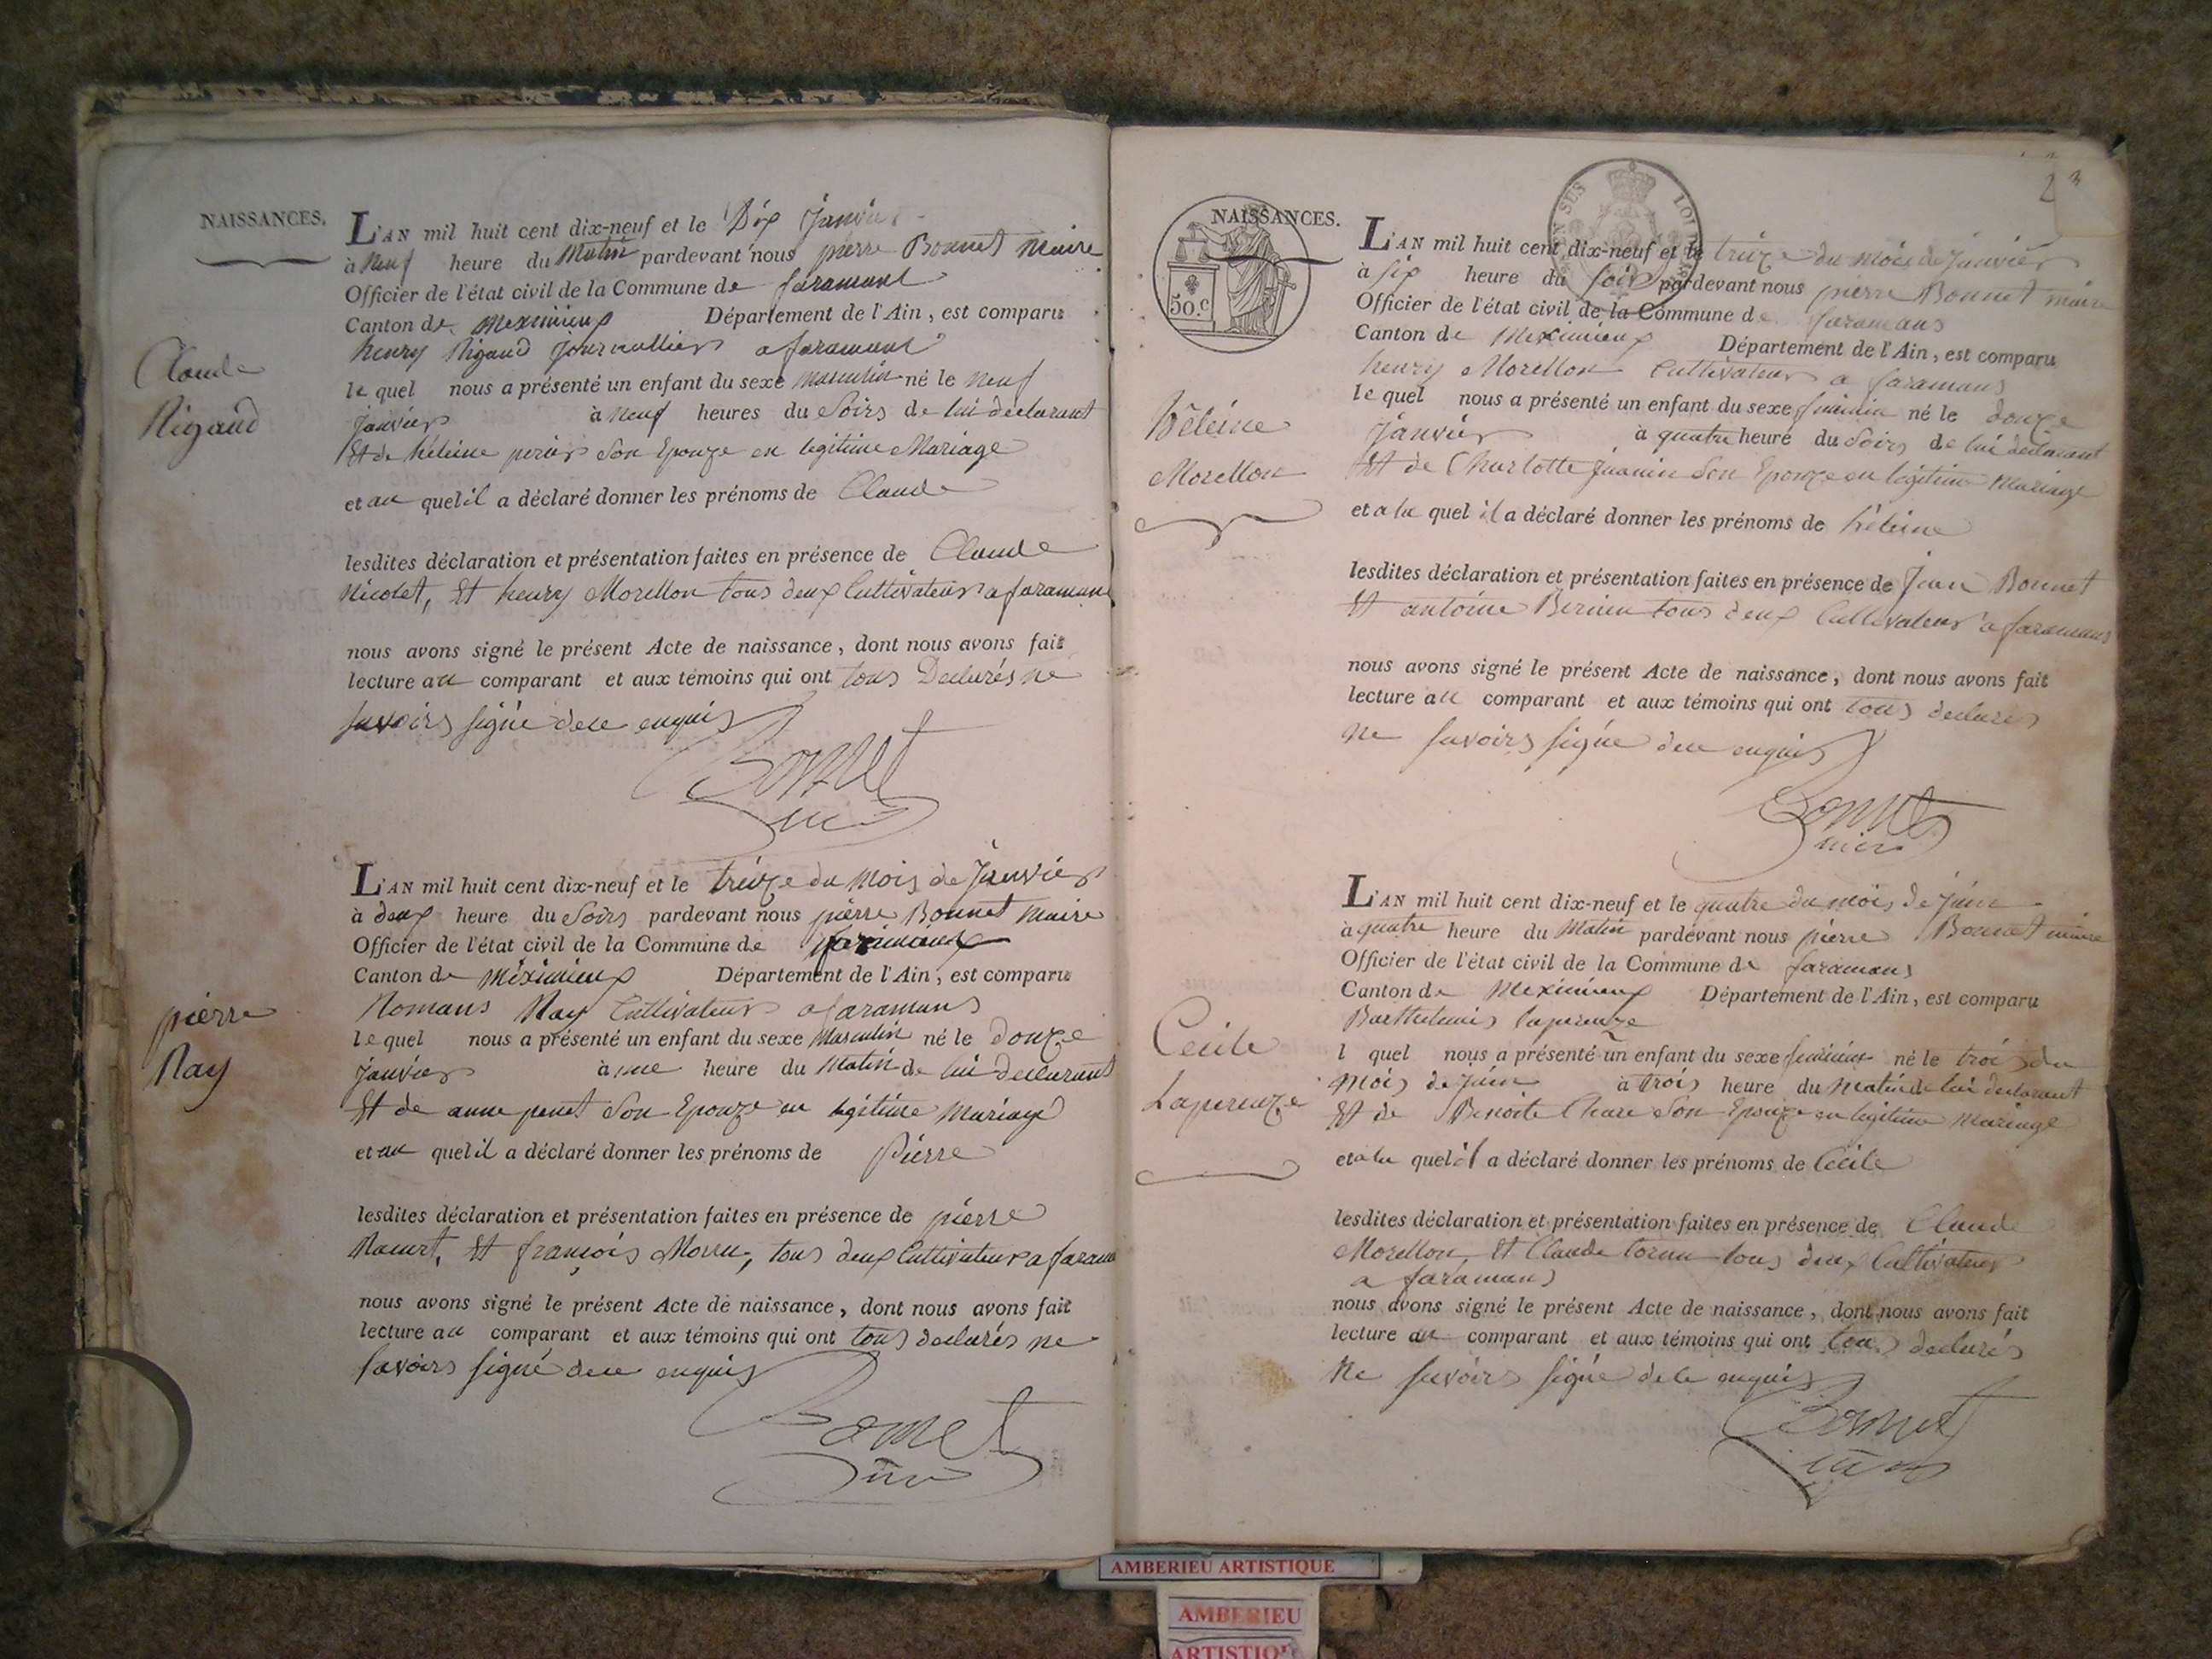 NAISSANCES.
L'AN mil huit cent dix-neuf et le Dix Janvier
à neuf heure du Matin pardevant nous pierre Bonnet maire
Officier de l'état civil de la Commune de faramans
Canton de meximieux Département de l'Ain, est comparu
henry Rigaud Journallier a faramans
le quel nous a présenté un enfant du sexe masculin né le neuf
Janvier à neuf heures du Soirs de lui declarant
Et de héleine perier Son Epouze en legitime Mariage
et au quel il a déclaré donner les prénoms de Claude
lesdites déclaration et présentation faites en présence de Claude
Nicolet, Et henry Morellon tous deux Cultivateur a faramans
nous avons signé le présent Acte de naissance, dont nous avons fait
lecture au comparant et aux témoins qui ont tous Declarés ne
savoirs signé de ce enquis
Bonnet
Claude
Rigaud
L'AN mil huit cent dix-neuf et le treize du mois de Janvier
à deux heure du Soirs pardevant nous pierre Bonnet maire
Officier de l'état civil de la Commune de
Canton de méximieux Département de l'Ain, est comparu
Romans Ray Cultivateur a faramans
le quel nous a présenté un enfant du sexe Masculin né le Douze
janvier à une heure du Matin de lui declarant
Et de anne penet Son Epouze en legitime mariage
et au quel il a déclaré donner les prénoms de Pierre
lesdites déclaration et présentation faites en présence de pierre
Et françois tous deux Cultivateur a
nous avons signé le présent Acte de naissance, dont nous avons fait
lecture au comparant et aux témoins qui ont tous declarés ne
savoirs signé de ce enquis
Bonnet
pierre
Ray
NAISSANCES.
50.c
L'AN mil huit cent dix-neuf et le treize du mois de Janvier
à six heure du soir pardevant nous pierre Bonnet maire
Officier de l'état civil de la Commune de faramans
Canton de Meximieux Département de l'Ain, est comparu
henry Morellon Cultivateur a faramans
le quel nous a présenté un enfant du sexe feminin né le douze
Janvier à quatre heure du Soirs de lui declarant
Et de Charlotte Juanin Son Epouze en legitime Mariage
et a la quel il a déclaré donner les prénoms de héleine
lesdites déclaration et présentation faites en présence de Jean Bonnet
Et antoine tous deux Cultivateur a faramans
nous avons signé le présent Acte de naissance, dont nous avons fait
lecture au comparant et aux témoins qui ont tous declarés
ne savoirs signé de ce enquis
Bonnet
maire
héleine
Morellon
L'AN mil huit cent dix-neuf et le quatre du mois de Juin
à quatre heure du Matin pardevant nous pierre Bonnet maire
Officier de l'état civil de la Commune de faramans
Canton de Meximieux Département de l'Ain, est comparu
Barthelemis Lapereuze
l quel nous a présenté un enfant du sexe feminin né le trois du
mois de Juin à trois heure du matin de lui declarant
Et de Benoite Son Epouze en legitime Mariage
et a la quel il a déclaré donner les prénoms de Cécile
lesdites déclaration et présentation faites en présence de Claude
Morellon, Et Claude tous deux Cultivateur
a faramans
nous avons signé le présent Acte de naissance, dont nous avons fait
lecture au comparant et aux témoins qui ont tous declarés
Ne savoirs signé de ce enquis
Bonnet
Cecile
Lapereuze
AMBERIEU ARTISTIQUE
AMBERIEU